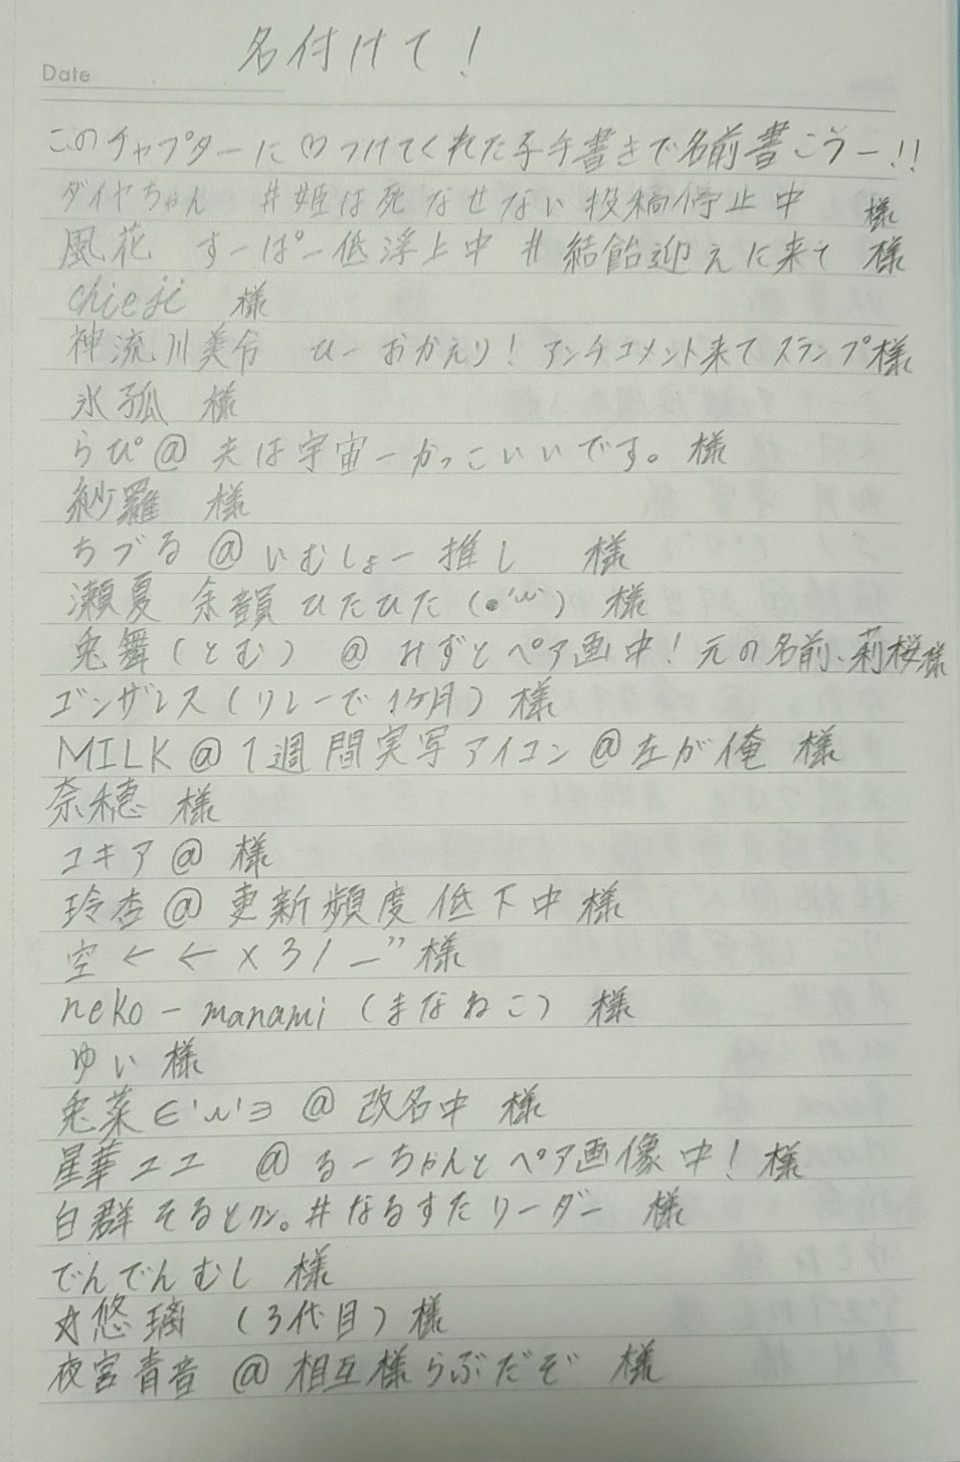 名付けて!
Date
このチャプターに♡つけてくれた子手書きで名前書こうー!!
ダイヤちゃん #姫は死なせない 投稿停止中 様
風花 すーぱー低浮上中 #結飴迎えに来て 様
chieji 様
神流川美令 ひーおかえり! アンチコメント来てスランプ様
氷狐 様
らぴ@夫は宇宙一かっこいいです。様
紗羅 様
ちづる @いむしょー推し 様
瀬夏 余韻ひたひた(●'ω') 様
兎舞(とむ) @みずとペア画中!元の名前、莉桜様
ゴンザレス(リレーで1ケ月)様
MILK@1週間実写アイコン@左が俺 様
奈穂 様
ユキア@ 様
玲杏@ 更新頻度低下中様
空←←×3/―”様
neko-manami(まなねこ) 様
ゆい 様
兎菜∈'ω'∋ @改名中 様
星華ユユ @るーちゃんとペア画像中! 様
白群そるとクン。#なるすたリーダー 様
でんでんむし 様
☆悠璃 (3代目)様
夜宮青音 @相互様らぶだぞ 様